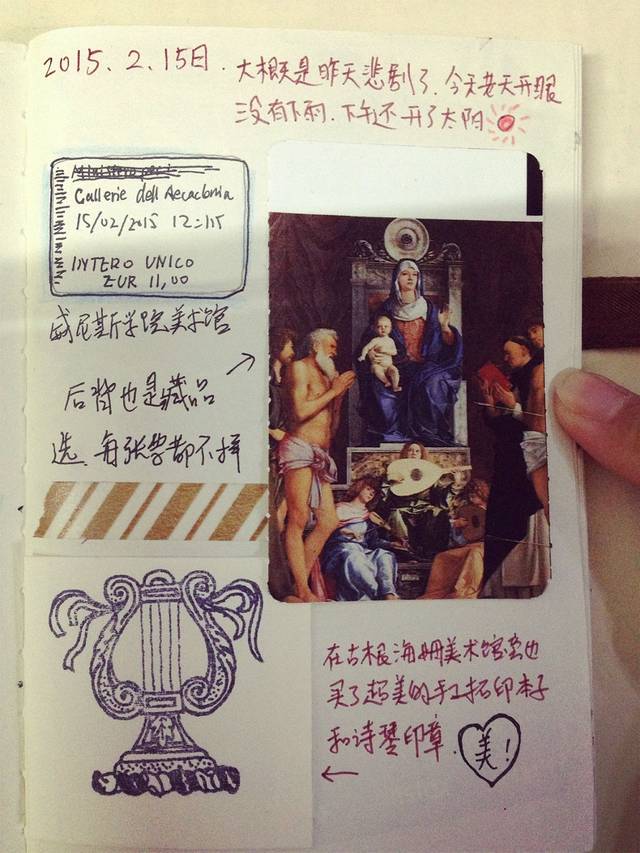 2015.2.15日.
大概是昨天悲剧了.今天老天开眼
没有下雨.下午还开了太阳
Gallerie dell Accademia
15/02/2015 12:15
INTERO UNICO
EUR 11,00
威尼斯学院美术馆
后背也是藏品
选.每张票都不一样
在古根海姆美术馆旁也
买了超美的手工拓印本子
和诗琴印章.
美!